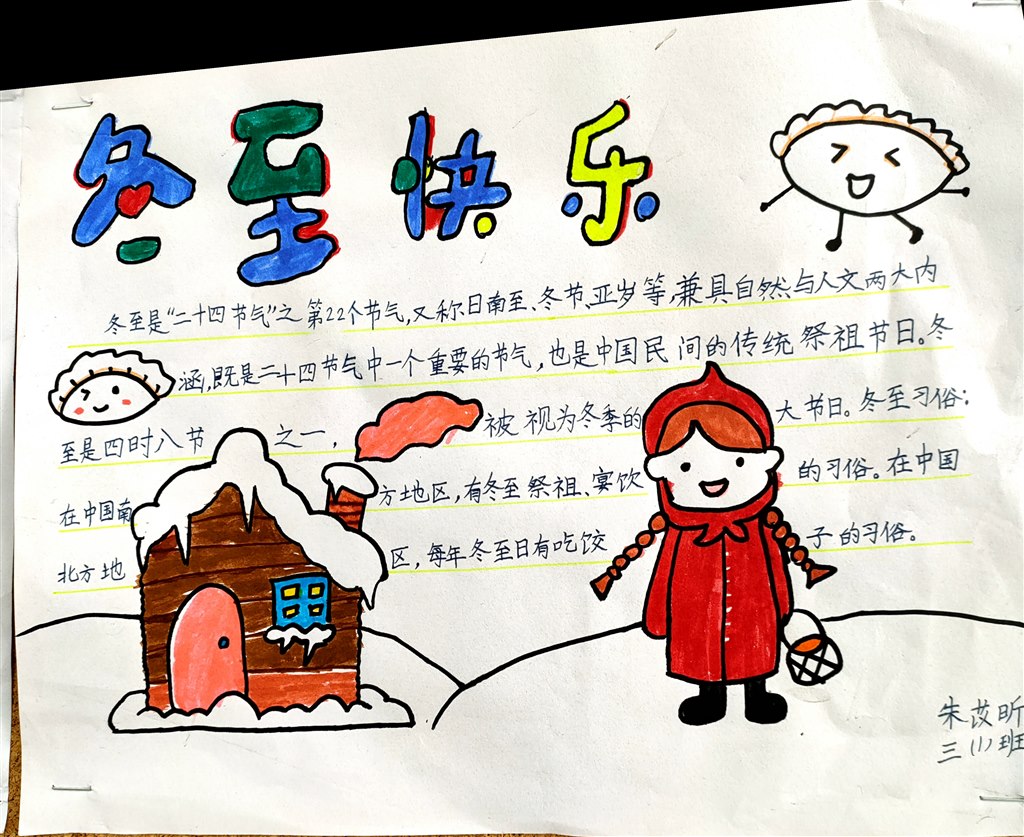 冬至快乐
冬至是“二十四节气”之第22个节气,又称日南至、冬节、亚岁等,兼具自然与人文两大内
涵,既是二十四节气中一个重要的节气,也是中国民间的传统祭祖节日。冬
至是四时八节之一,被视为冬季的大节日。冬至习俗:
在中国南方地区,有冬至祭祖、宴饮的习俗。在中国
北方地区,每年冬至日有吃饺子的习俗。
朱苡昕
三(1)班